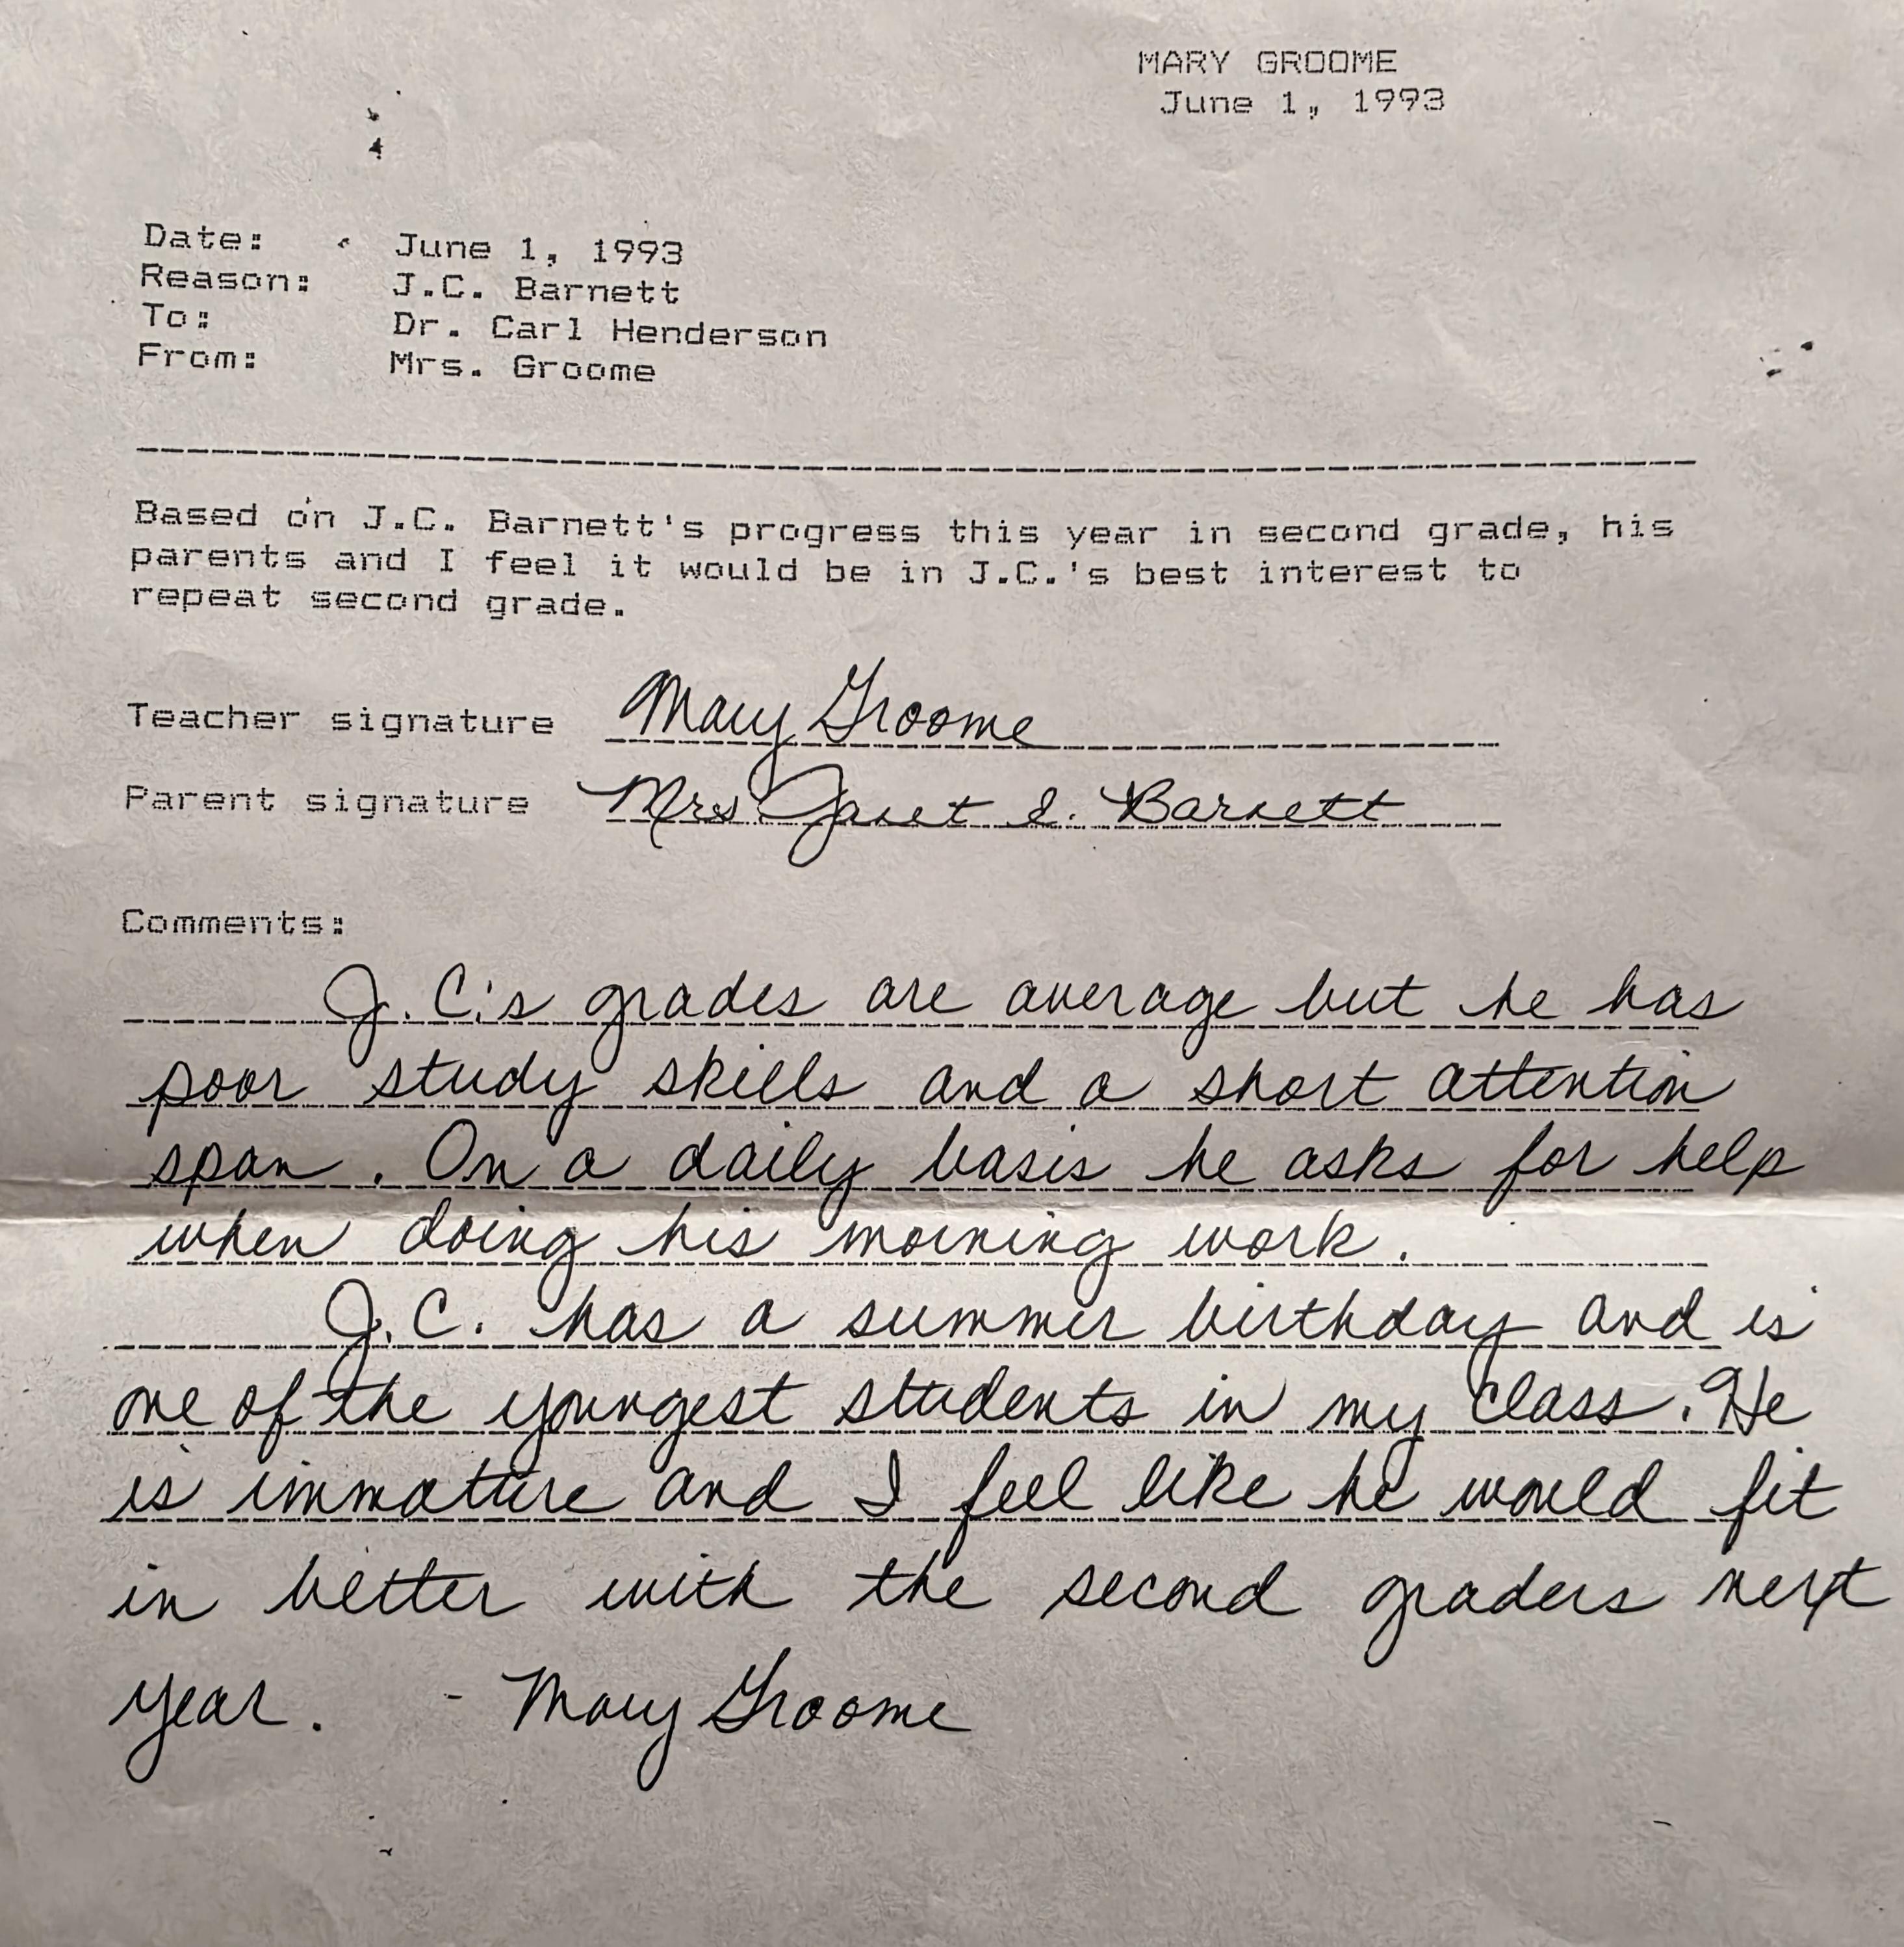 MARY GROOME
June 1, 1993
Date: June 1, 1993
Reason: J.C. Barnett
To: Dr. Carl Henderson
From: Mrs. Groome
Based on J.C. Barnett's progress this year in second grade, his
parents and I feel it would be in J.C.'s best interest to
repeat second grade.
Teacher signature Mary Groome
Parent signature Mrs Janet L. Barnett
Comments:
J.C.'s grades are average but he has
poor study skills and a short attention
span. On a daily basis he asks for help
when doing his morning work.
J.C. has a summer birthday and is
one of the youngest students in my class. He
is immature and I feel like he would fit
in better with the second graders next
year. - Mary Groome